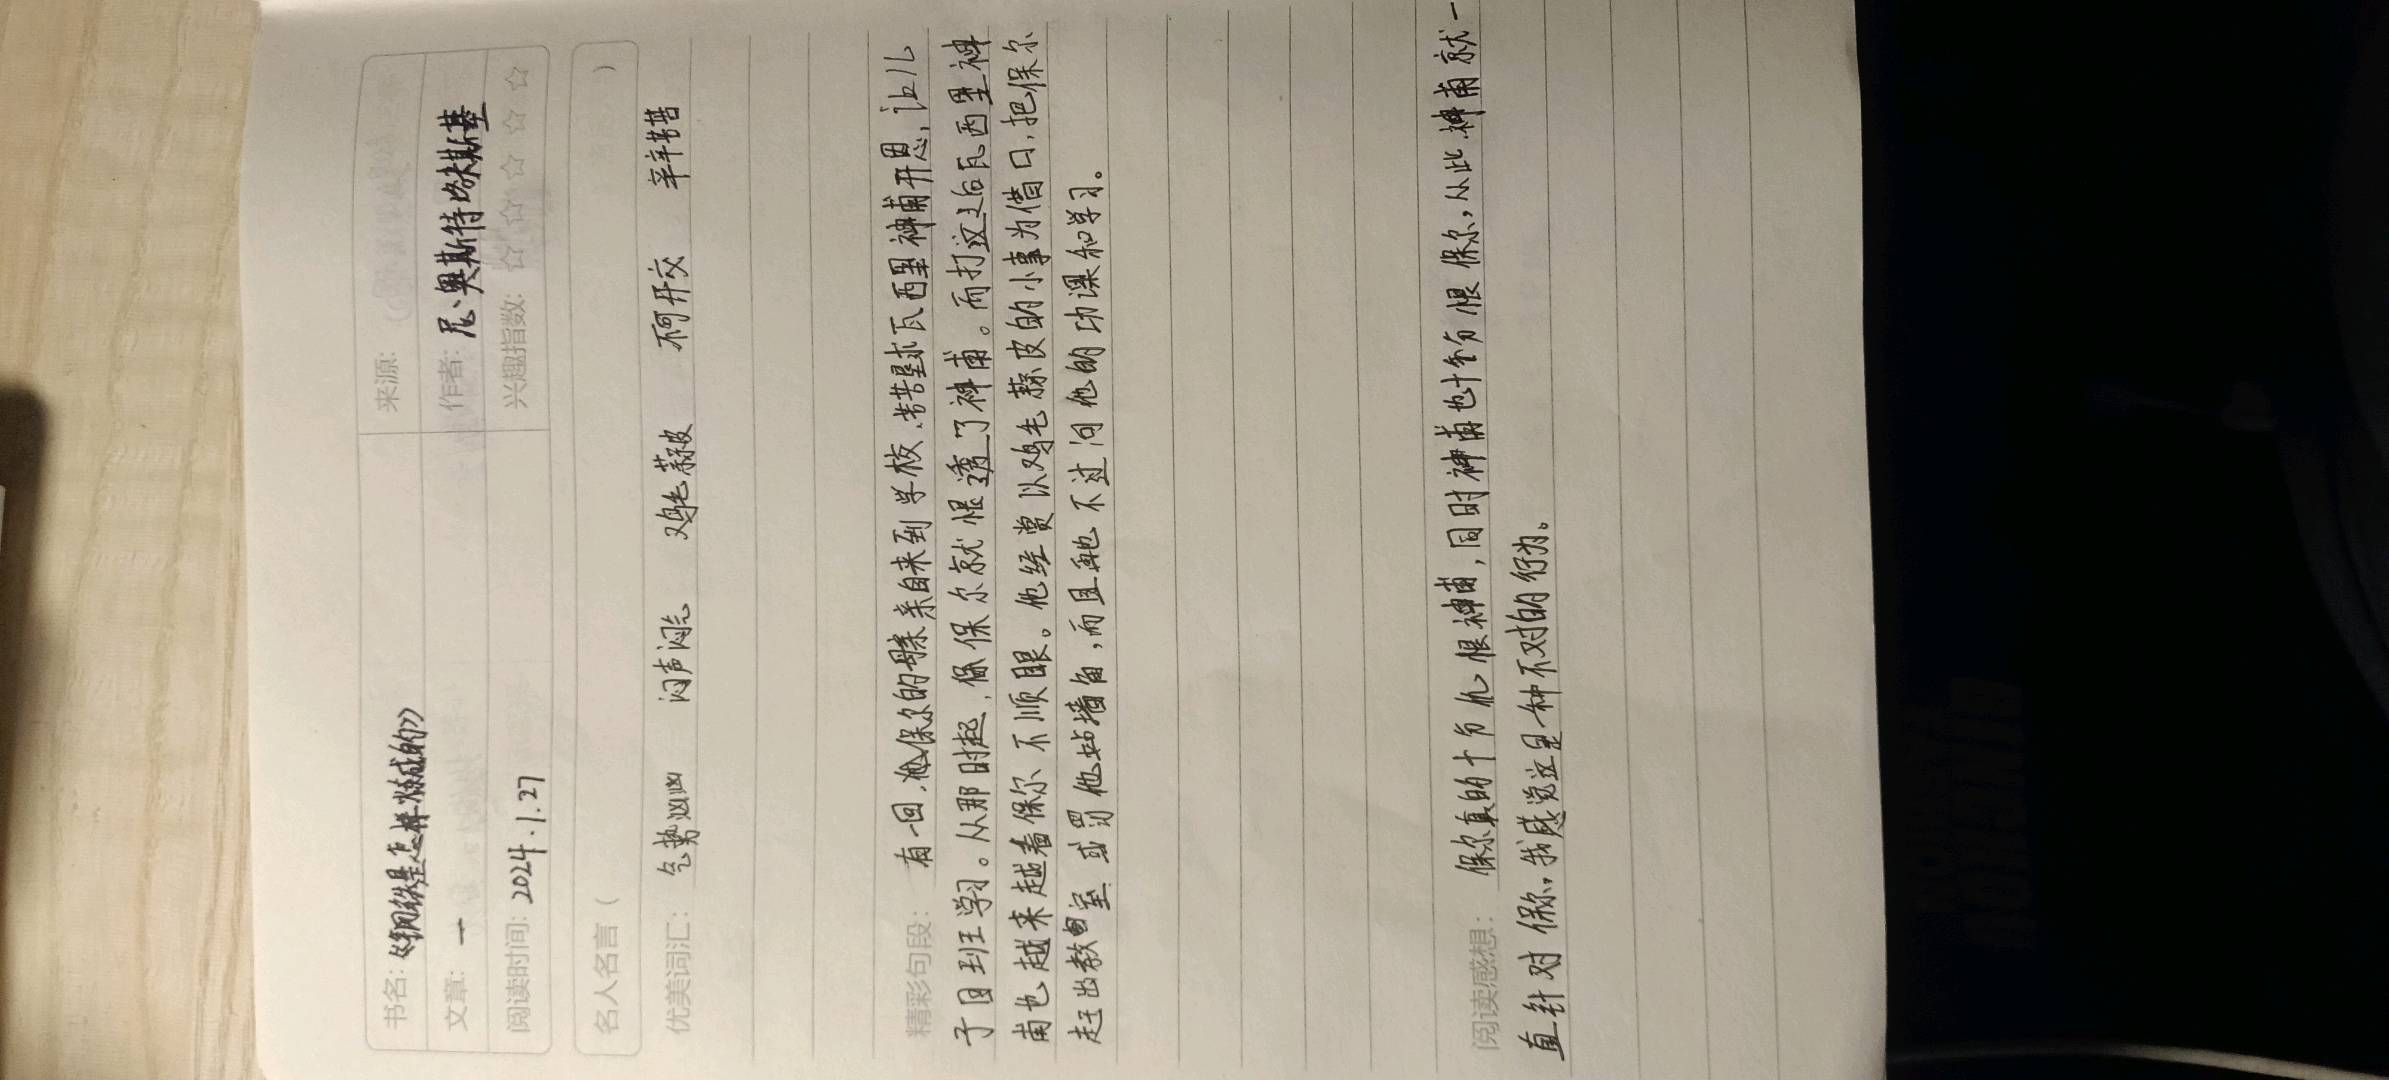 书名:《钢铁是怎样炼成的》 来源:
文章: 一 作者: 尼·奥斯特洛夫斯基
阅读时间: 2024.1.27 兴趣指数: ☆ ☆ ☆ ☆ ☆
名人名言 ( )
优美词汇: 气势汹汹 闷声闷气 鸡毛蒜皮 不可开交 辛辛苦苦
精彩句段: 有一回,保尔的母亲亲自来到学校,苦苦哀求瓦西里神甫开恩,让儿
子回班学习。从那时起,保尔就恨透了神甫。而打这之后瓦西里神
甫也越来越看保尔不顺眼。他经常以鸡毛蒜皮的小事为借口,把保尔
赶出教室或罚他站墙角,而且再也不过问他的功课和学习。
阅读感想: 保尔真的十分仇恨神甫,同时神甫也十分恨保尔,从此神甫就一
直针对保尔。我感觉这是一种不对的行为。